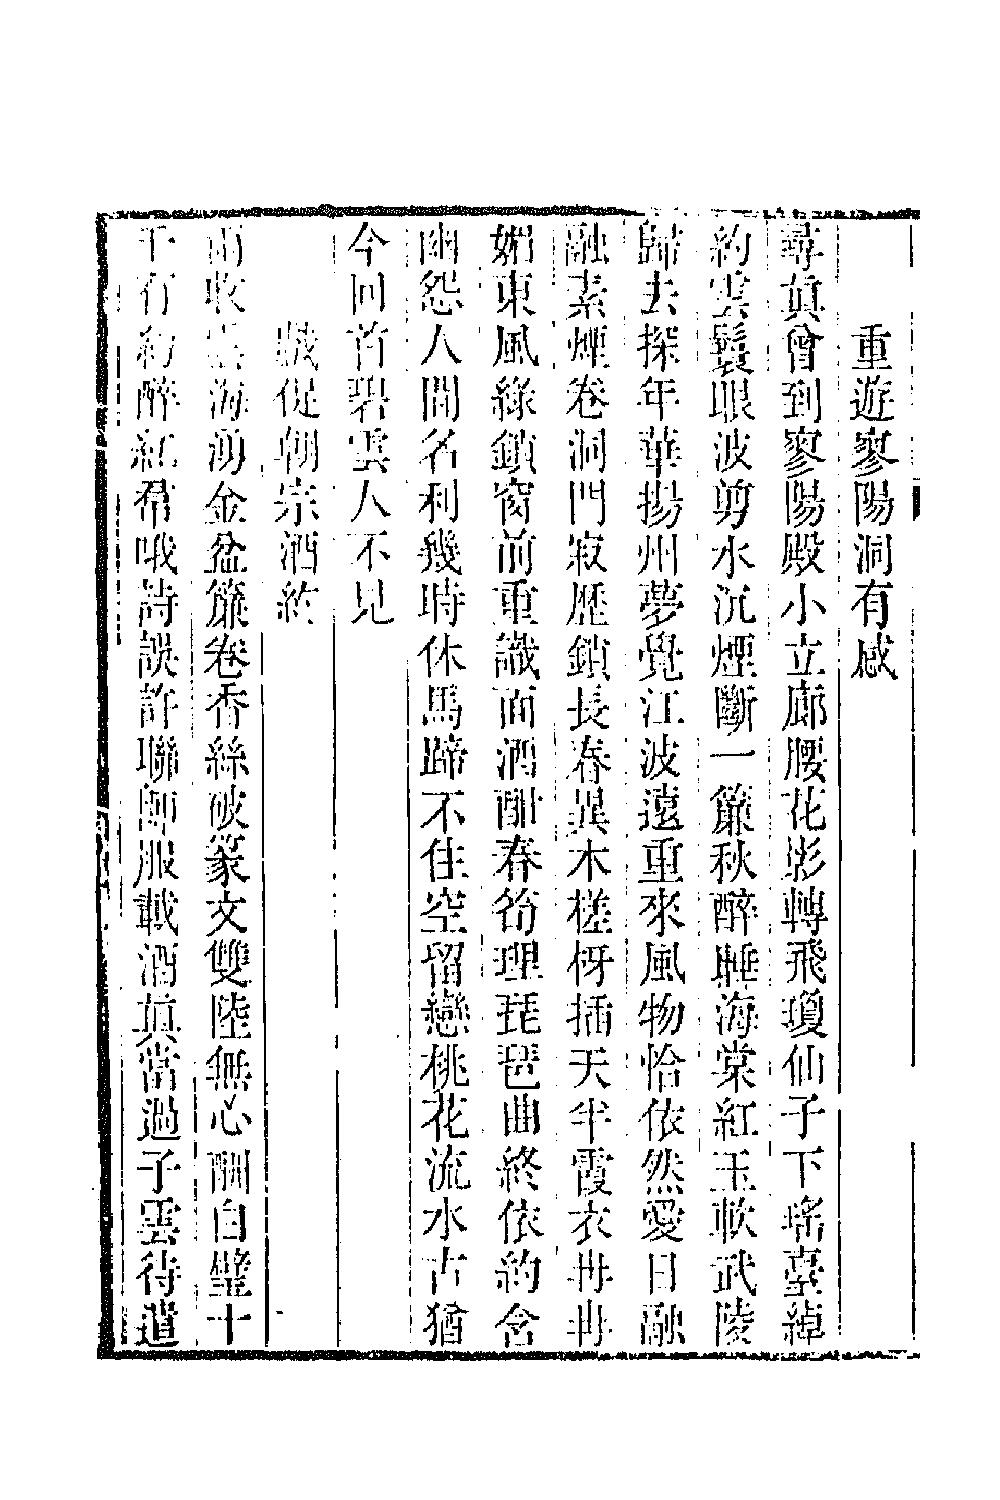 重遊寥陽洞有感
尋真曾到寥陽殿小立廊腰花影轉飛瓊仙子下瑤臺綽
約雲鬟眼波剪水沉煙斷一簾秋醉睡海棠紅玉軟武陵
歸去探年華揚州夢覺江波遠重來風物恰依然愛日融
融素煙卷洞門寂歷鎖長春異木槎枒插天半霞衣冉冉
媚東風綠鎖窗前重識面酒酣春筍理琵琶曲終依約含
幽怨人間名利幾時休馬蹄不住空留戀桃花流水古猶
今回首碧雲人不見
戲促朝宗酒約
雨收雲海湧金盆簾卷香絲破篆文雙陸無心酬白璧十
千有約醉紅帬哦詩誤許聯師服載酒真當過子雲待遣